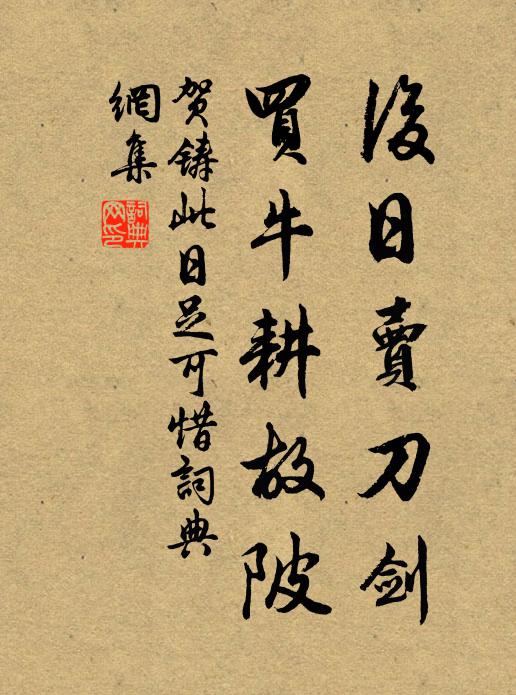 後日賣刀劍
買牛耕故陂
賀鑄此日足可惜詞典
網集
詞典
网印